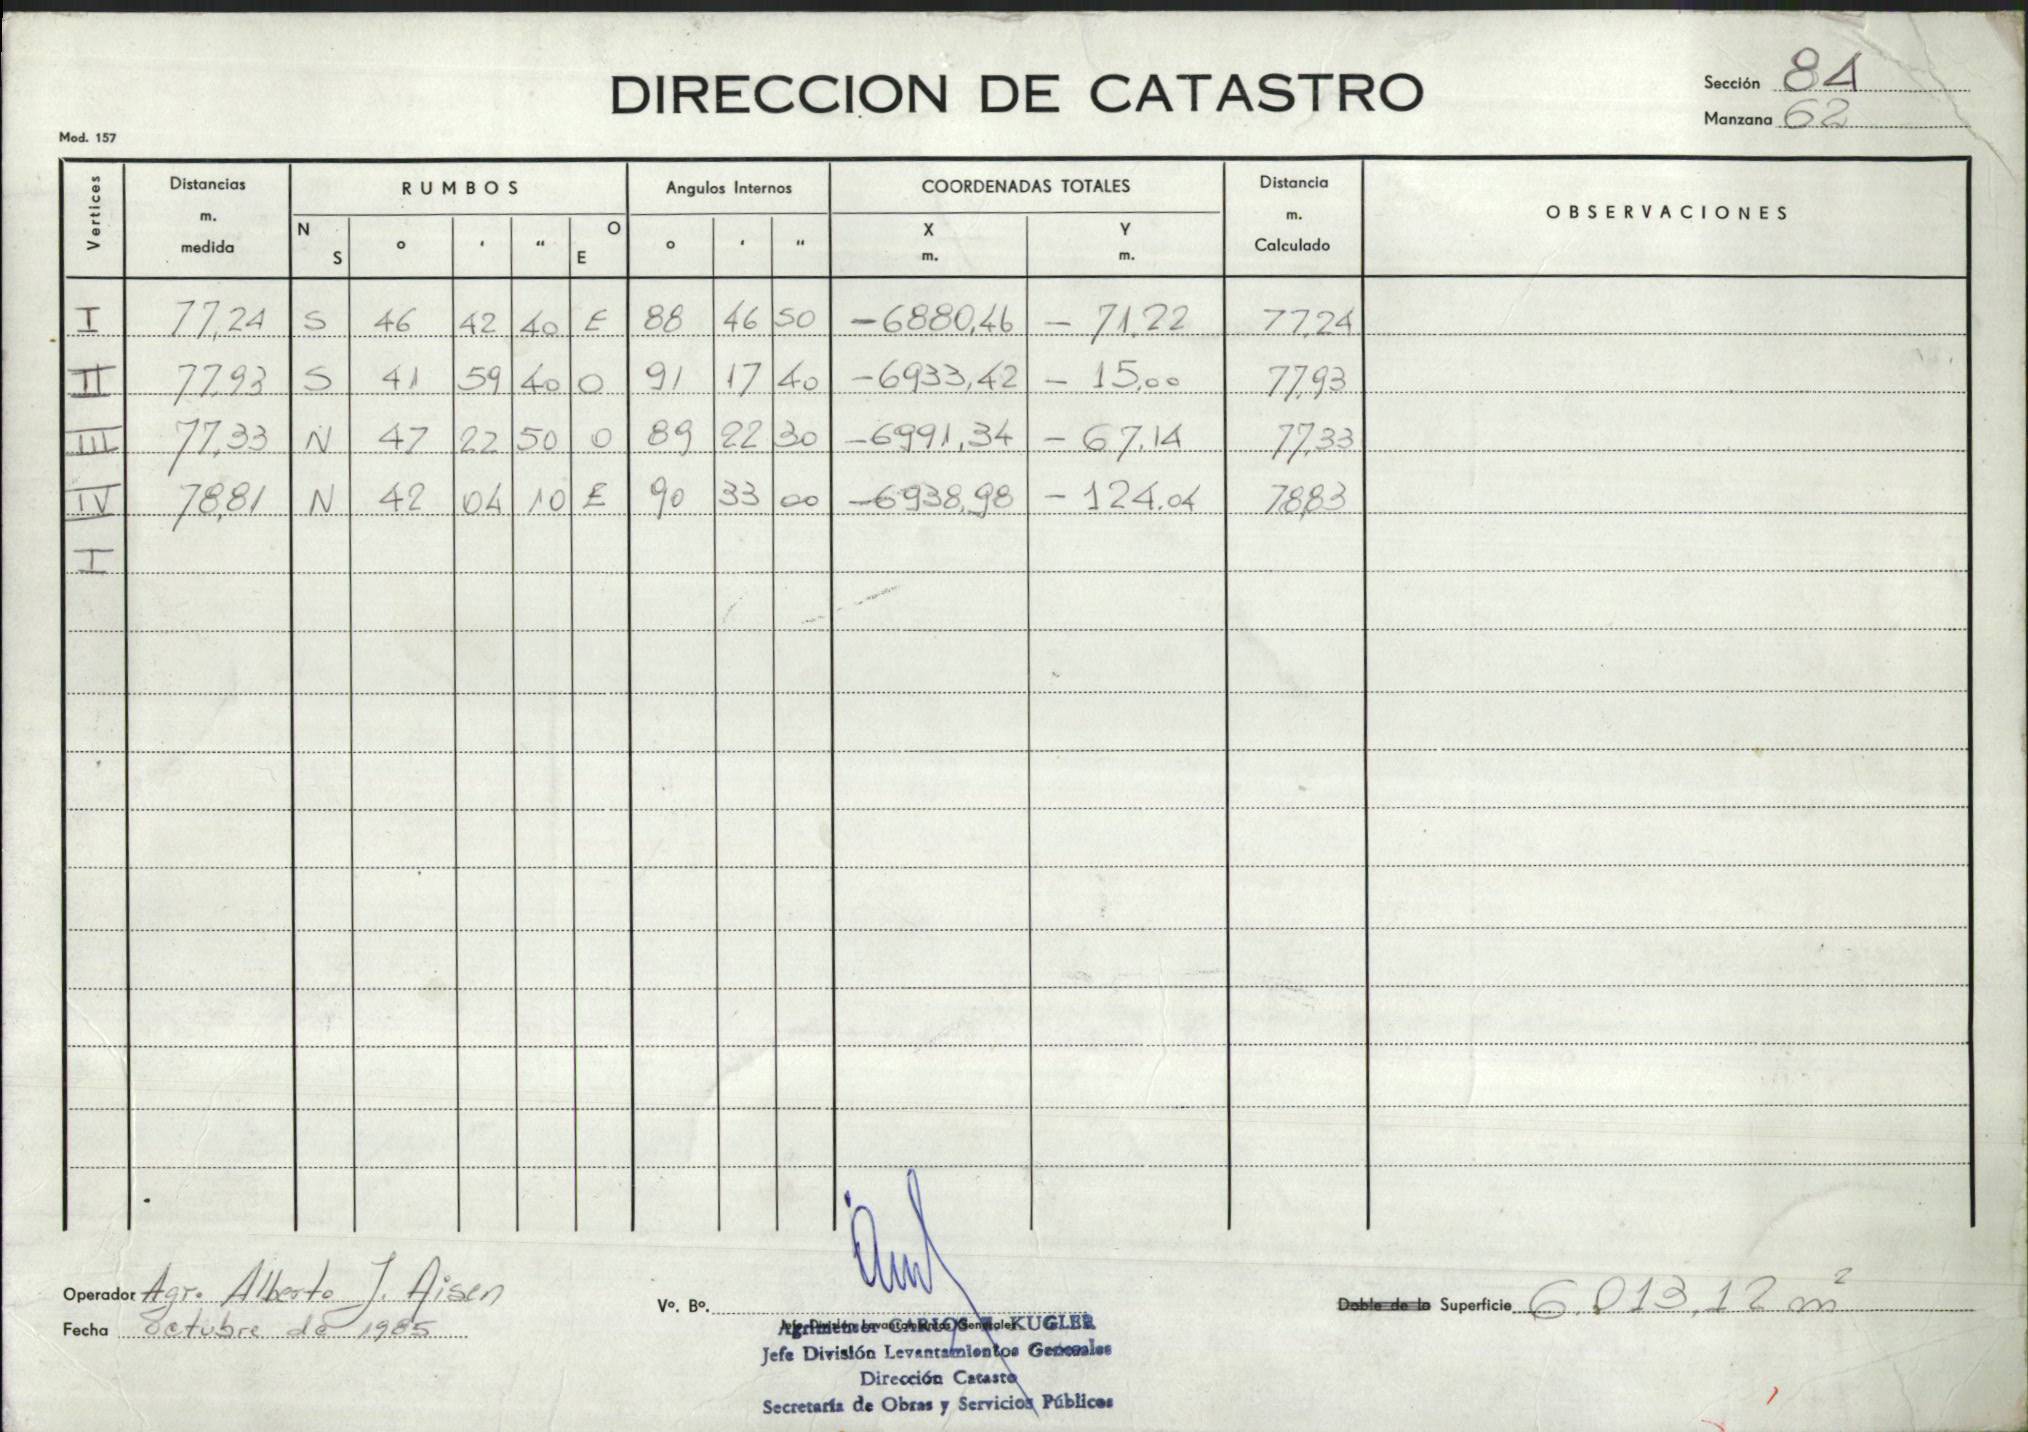 DIRECCION DE CATASTRO
Sección 84
Manzana 62
Mod. 157
Vertices Distancias m. medida RUMBOS Angulos Internos COORDENADAS TOTALES Distancia m. Calculado OBSERVACIONES
N S ° ' " O E ° ' " X m. Y m.
I 77,24 S 46 42 40 E 88 46 50 -6880,46 - 71,22 77,24
II 77,93 S 41 59 40 O 91 17 40 -6933,42 - 15,00 77,93
III 77,33 N 47 22 50 O 89 22 30 -6991,34 - 67,14 77,33
IV 78,81 N 42 04 10 E 90 33 00 -6938,98 - 124,04 78,83
I
Operador Agr. Alberto J. Aisen
Fecha Octubre de 1985
Vº. Bº.
Jefe División Levantamientos Generales
Agrimensor CARLOS KUGLER
Jefe División Levantamientos Generales
Dirección Catasto
Secretaría de Obras y Servicios Públicos
Doble de la Superficie 6.013,12 m²